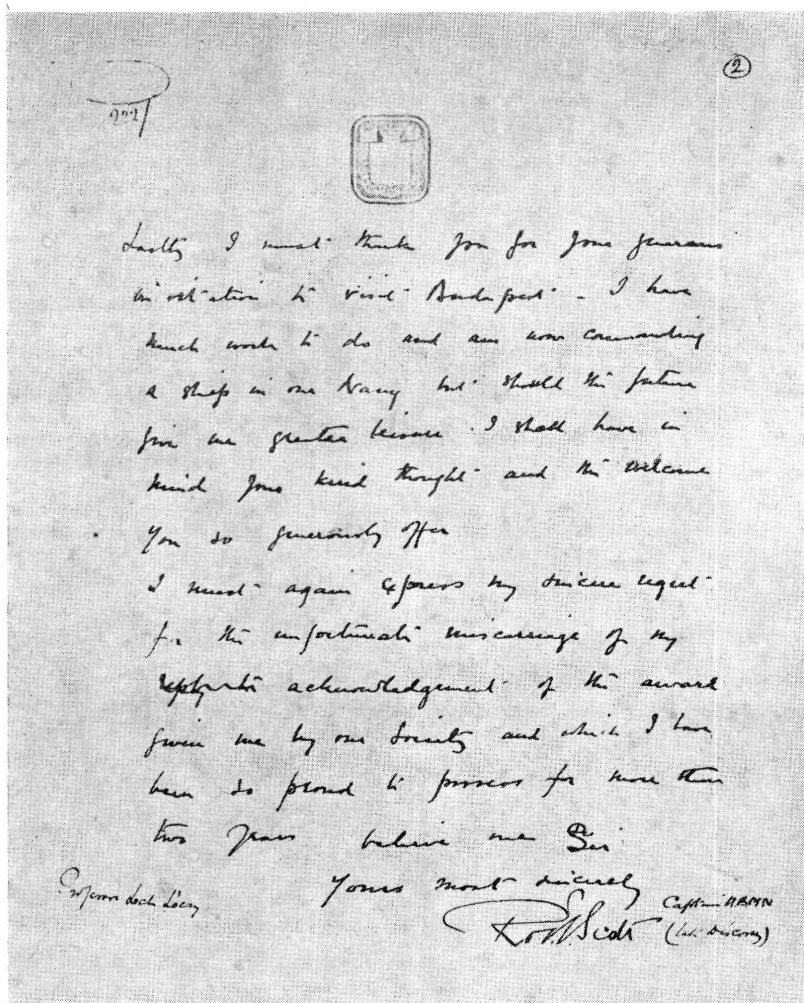 ②
222
Lastly I must thank you for your generous
invitation to visit Budapest - I have
much work to do and am now commanding
a ship in our Navy but should the future
give me greater leisure I shall have in
mind your kind thought and the welcome
you so generously offer
I must again express my sincere regret
for the unfortunate miscarriage of my
acknowledgement of the award
given me by our Society and which I have
been so proud to possess for more than
two years believe me Sir
Yours most sincerely
Professor Loch Lóczy
RobtFScott
Captain
(late Discovery)